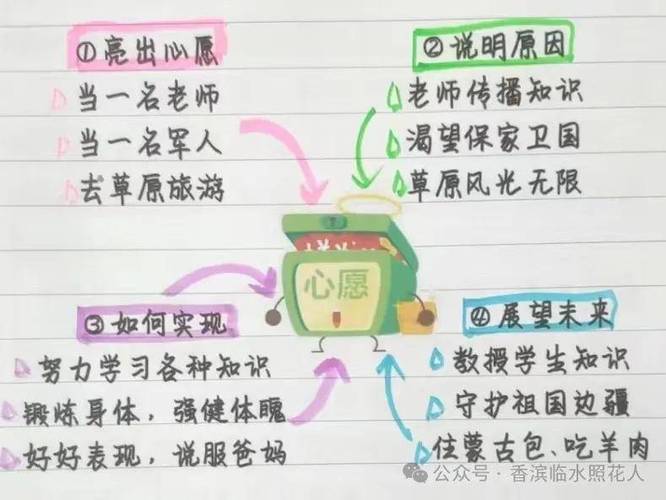 ①亮出心愿
当一名老师
当一名军人
去草原旅游
②说明原因
老师传播知识
渴望保家卫国
草原风光无限
心愿
③如何实现
努力学习各种知识
锻炼身体，强健体魄
好好表现，说服爸妈
④展望未来
教授学生知识
守护祖国边疆
住蒙古包、吃羊肉
公众号·香滨临水照花人